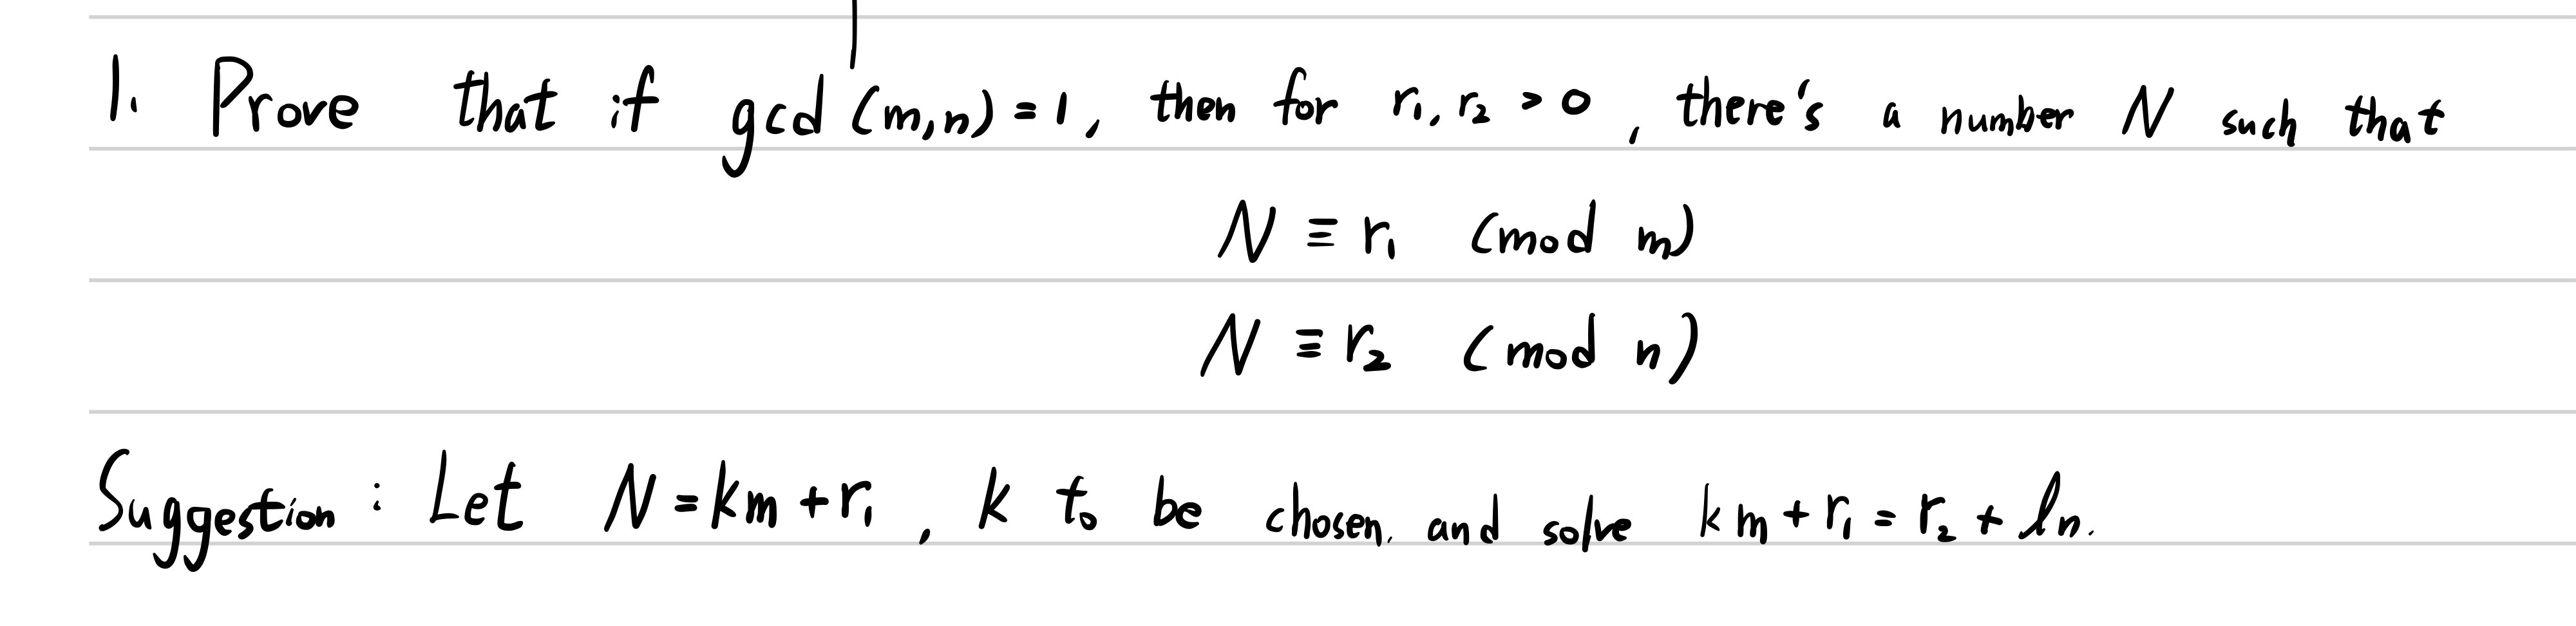 1. Prove that if gcd(m,n)=1, then for r₁, r₂ > 0, there's a number N such that
N ≡ r₁ (mod m)
N ≡ r₂ (mod n)
Suggestion : Let N=km+r₁, k to be chosen, and solve km+r₁=r₂+ln.